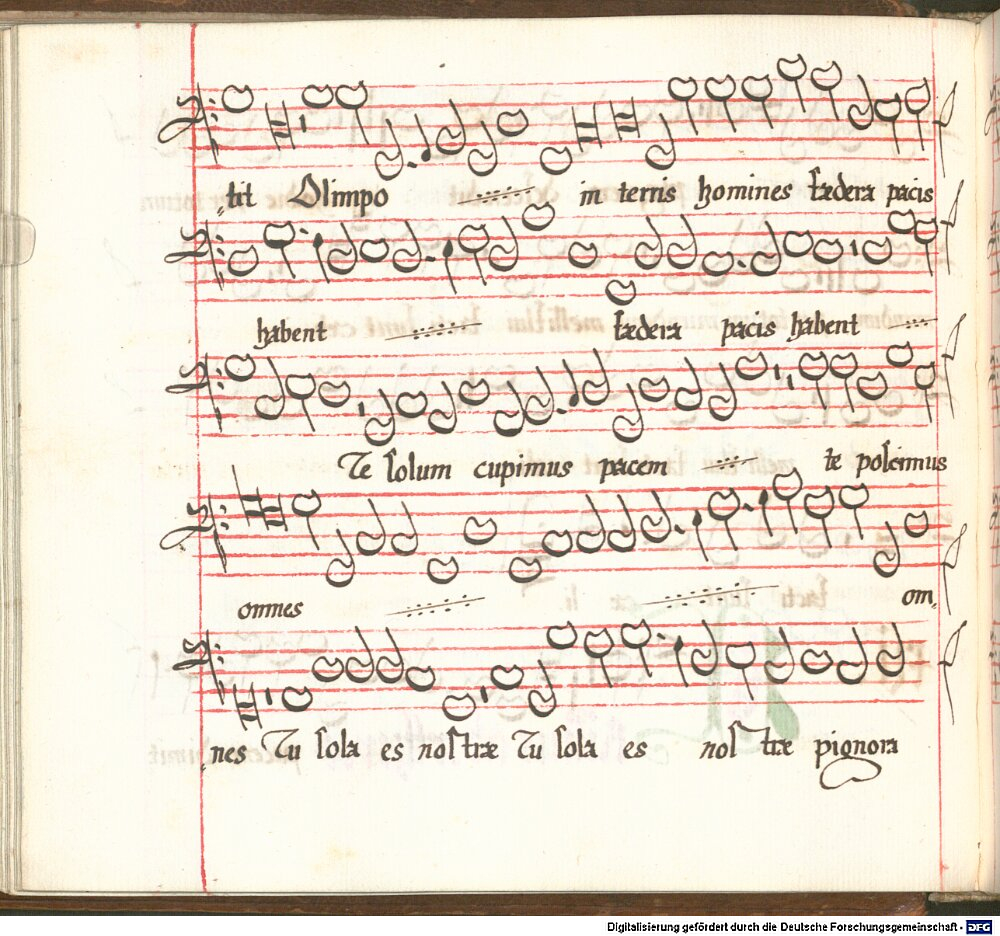 tit Olimpo in terris homines fædera pacis
habent fædera pacis habent
Te solum cupimus pacem te poscimus
omnes om,
nes Tu sola es nostræ Tu sola es nostræ pignora
Digitalisierung gefördert durch die Deutsche Forschungsgemeinschaft - DFG